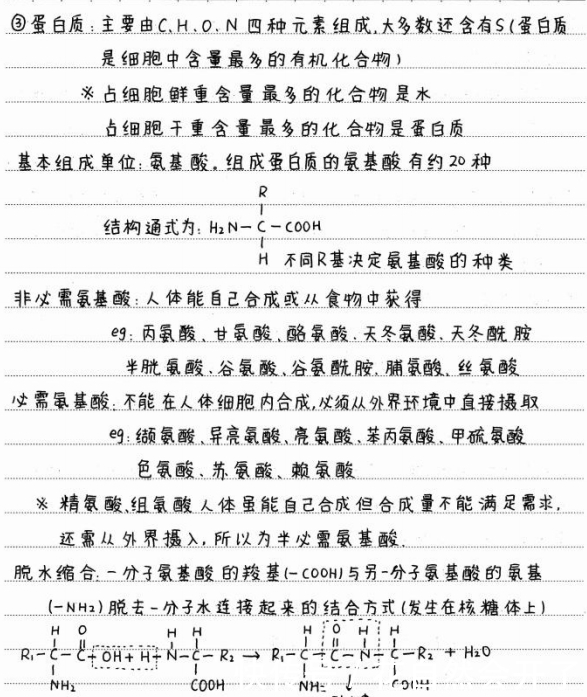 ③蛋白质：主要由C、H、O、N四种元素组成,大多数还含有S(蛋白质
是细胞中含量最多的有机化合物)
※占细胞鲜重含量最多的化合物是水
占细胞干重含量最多的化合物是蛋白质
基本组成单位:氨基酸。组成蛋白质的氨基酸有约20种
R
结构通式为: H₂N-C-COOH
H 不同R基决定氨基酸的种类
非必需氨基酸:人体能自己合成或从食物中获得
eg:丙氨酸、甘氨酸、酪氨酸、天冬氨酸、天冬酰胺
半胱氨酸、谷氨酸、谷氨酰胺、脯氨酸、丝氨酸
必需氨基酸:不能在人体细胞内合成,必须从外界环境中直接摄取
eg:缬氨酸、异亮氨酸、亮氨酸、苯丙氨酸、甲硫氨酸
色氨酸、苏氨酸、赖氨酸
※ 精氨酸、组氨酸人体虽能自己合成但合成量不能满足需求,
还需从外界摄入,所以为半必需氨基酸.
脱水缩合:一分子氨基酸的羧基(-COOH)与另一分子氨基酸的氨基
(-NH₂)脱去一分子水连接起来的结合方式(发生在核糖体上)
H O H H H O H H
R₁-C-C-OH+H-N-C-R₂→R₁-C-C-N-C-R₂+H₂O
NH₂ COOH NH₂ COOH